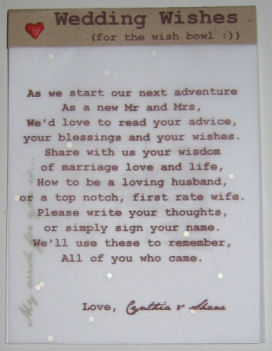 Wedding Wishes
(for the wish bowl :))
As we start our next adventure
As a new Mr and Mrs,
We'd love to read your advice,
your blessings and your wishes.
Share with us your wisdom
of marriage love and life,
How to be a loving husband,
or a top notch, first rate wife.
Please write your thoughts,
or simply sign your name.
We'll use these to remember,
All of you who came.
Love, Cynthia & Shane